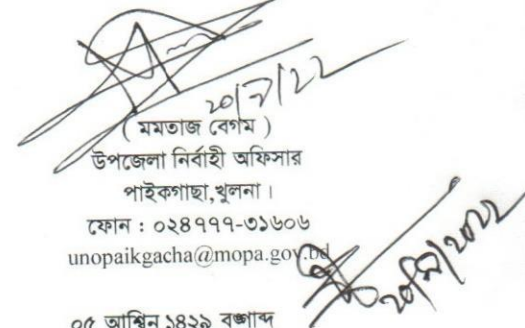 ২০/৯/২২
( মমতাজ বেগম )
উপজেলা নির্বাহী অফিসার
পাইকগাছা,খুলনা।
ফোন : ০২৪৭৭৭-৩১৬০৬
unopaikgacha@mopa.gov.bd
০৫ আশ্বিন ১৪২৯ বঙ্গাব্দ